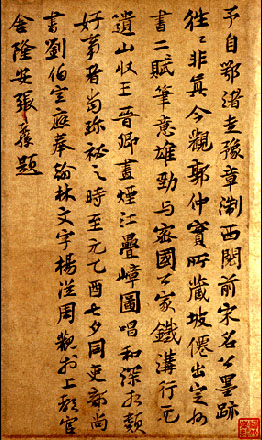 予自鄂渚走豫章浙西閱前宋名公墨跡
往往非真今觀郭仲實所藏坡僊出定州
書二賦筆意雄勁与密國公家鐵溝行元
遺山收王晉卿畫煙江疊嶂圖唱和深相類
好事者尚珍祕之時至元乙酉七夕同吏部尚
書劉伯宣應奉翰林文字楊從周觀於上都官
舍隆安張孔孫題